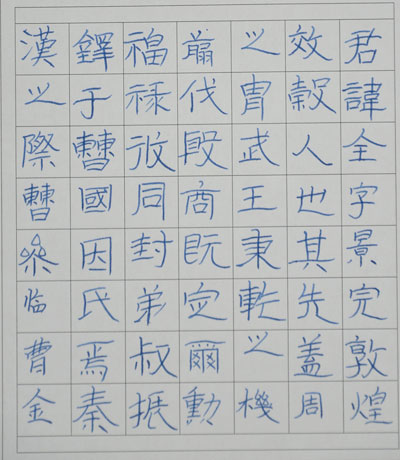 君諱全字景完敦煌
效穀人也其先蓋周
之胄武王秉乾之機
翦伐殷商既定爾勳
福祿攸同封弟叔振
鐸于曹國因氏焉秦
漢之際曹參临曹金